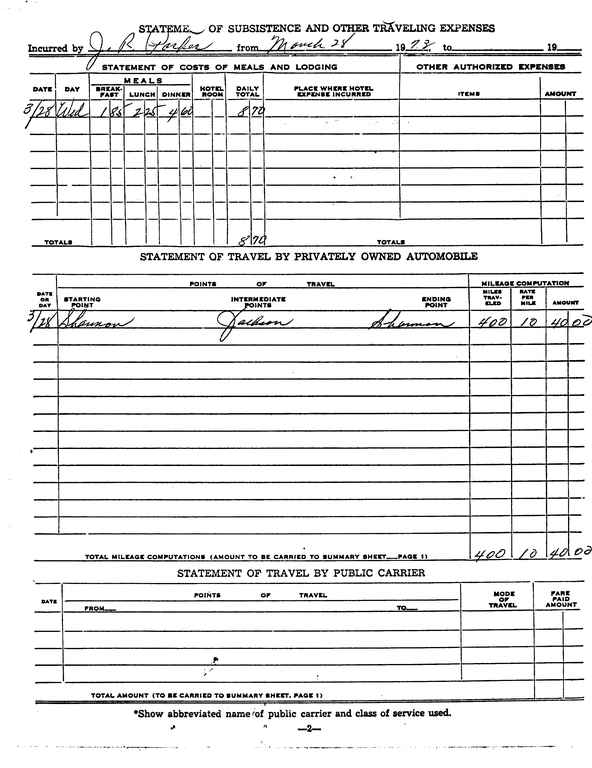 STATEME OF SUBSISTENCE AND OTHER TRAVELING EXPENSES
Incurred by J. R. Parker from March 28 1973 to 19
STATEMENT OF COSTS OF MEALS AND LODGING OTHER AUTHORIZED EXPENSES
MEALS
DATE DAY BREAK-FAST LUNCH DINNER HOTEL ROOM DAILY TOTAL PLACE WHERE HOTEL EXPENSE INCURRED ITEMS AMOUNT
3/28 Wed 1 85 2 25 4 60 8 70
TOTALS 8 70 TOTALS
STATEMENT OF TRAVEL BY PRIVATELY OWNED AUTOMOBILE
POINTS OF TRAVEL MILEAGE COMPUTATION
DATE OR DAY STARTING POINT INTERMEDIATE POINTS ENDING POINT MILES TRAV-ELED RATE PER MILE AMOUNT
3/28 Shannon Jackson Shannon 400 10 40 00
TOTAL MILEAGE COMPUTATIONS (AMOUNT TO BE CARRIED TO SUMMARY SHEET PAGE 1) 400 10 40 00
STATEMENT OF TRAVEL BY PUBLIC CARRIER
DATE POINTS OF TRAVEL MODE OF TRAVEL FARE PAID AMOUNT
FROM TO
TOTAL AMOUNT (TO BE CARRIED TO SUMMARY SHEET, PAGE 1)
*Show abbreviated name of public carrier and class of service used.
—2—